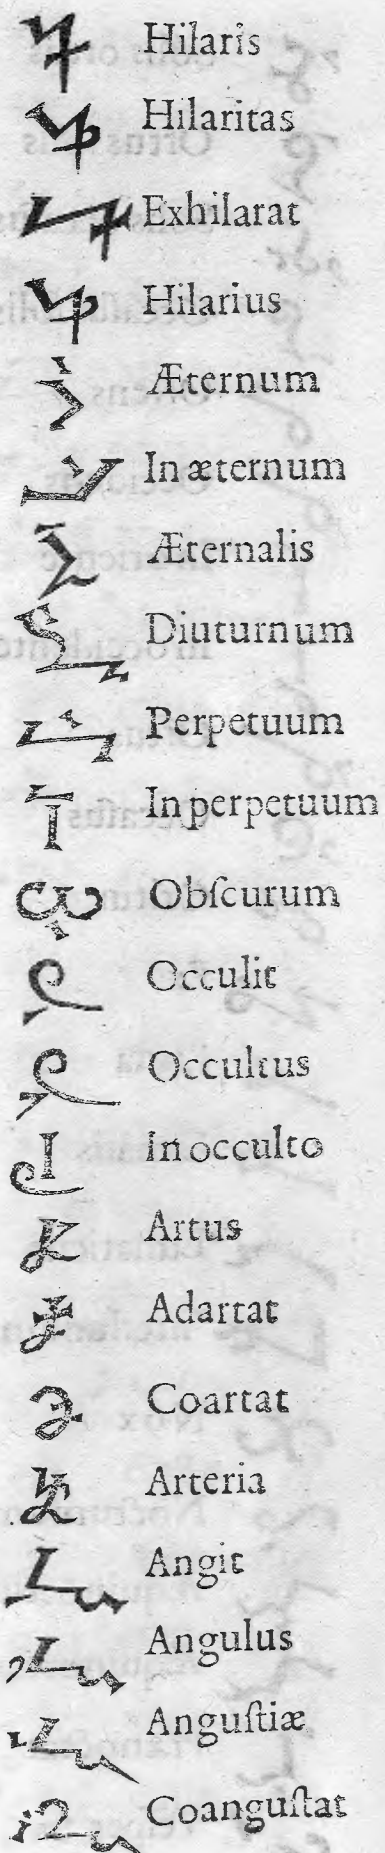 Hilaris
Hılaritas
Exhilarat
Hilarius
Æternum
In æternum
Æternalis
Diuturnum
Perpetuum
In perpetuum
Obſcurum
Occulit
Occultus
In occulto
Artus
Adartat
Coartat
Arteria
Angit
Angulus
Anguſtiæ
Coanguſtat